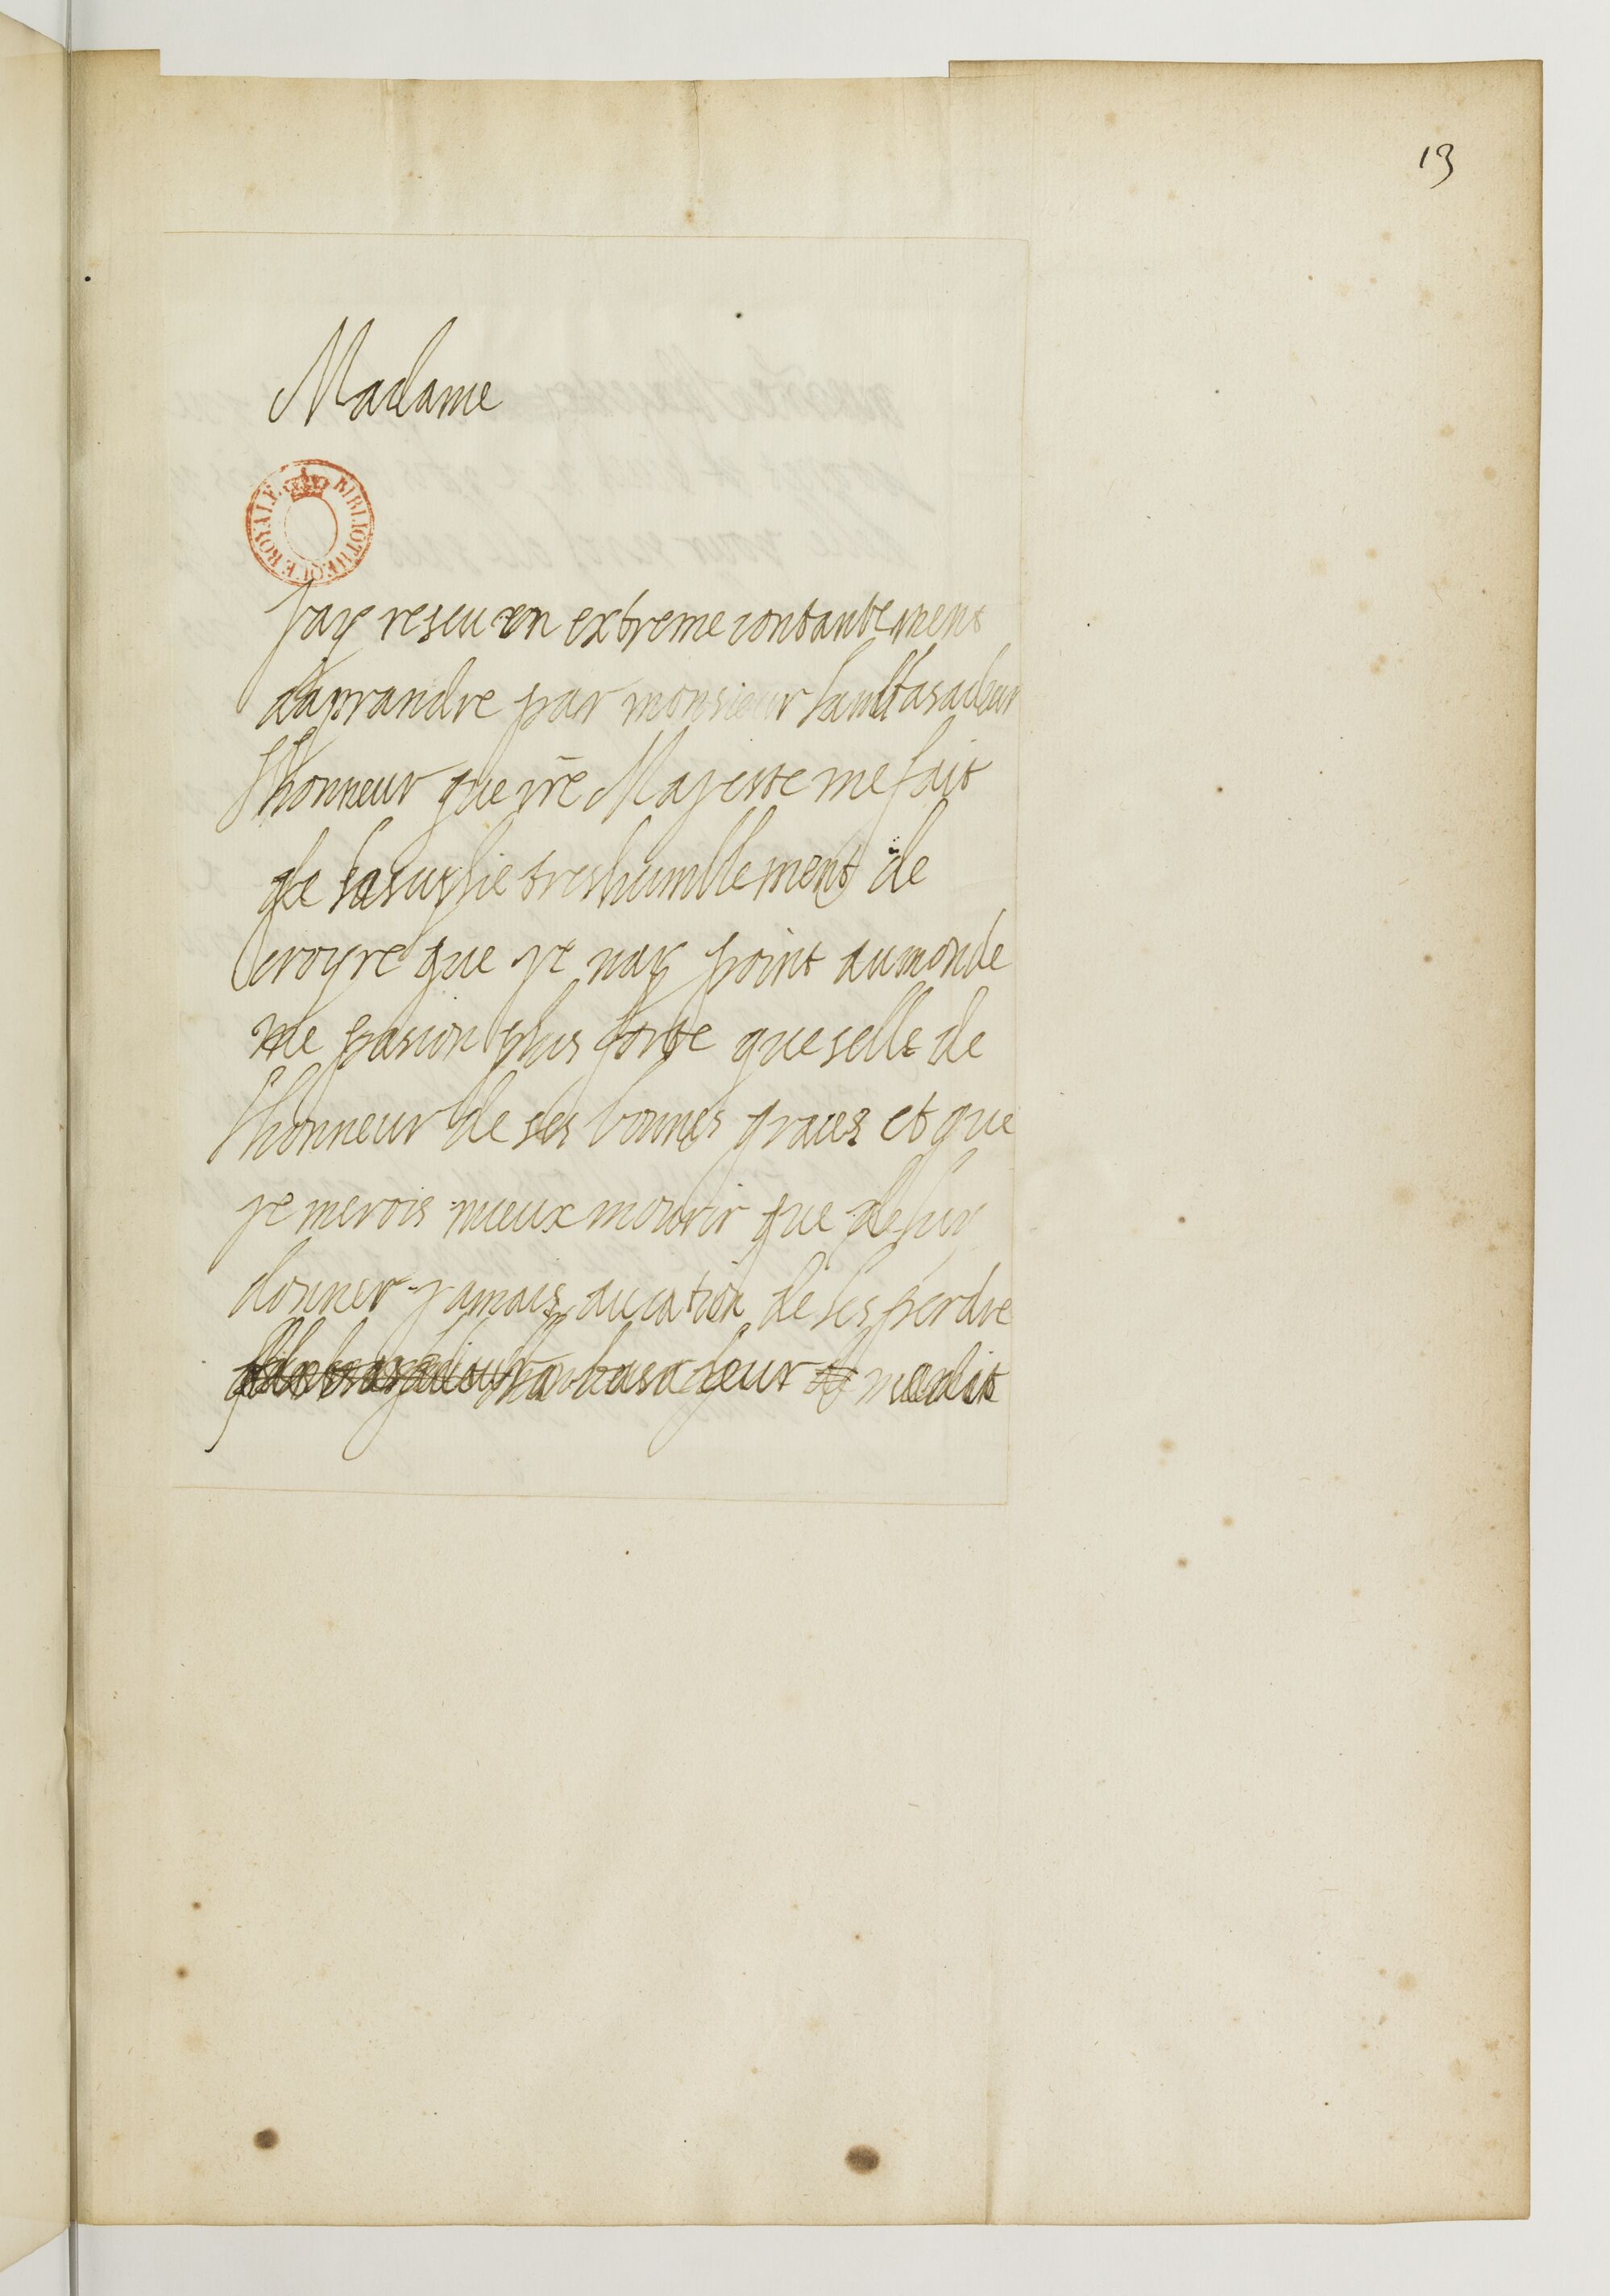 13
Madame
BIBLIOTHEQUE ROYALE
Jay reseu un extreme contantement
daprandre par monsieur lanbasadeur
lhonneur que vre Majeste me fait
je la suplie tres humblement de
croyre que je nay point au monde
une pasion plus forte que selle de
lhonneur de ses bonnes graces et que
je merois mieux mourir que de luy
donner jamais aucation de les perdre
lanbasadeur ma dit